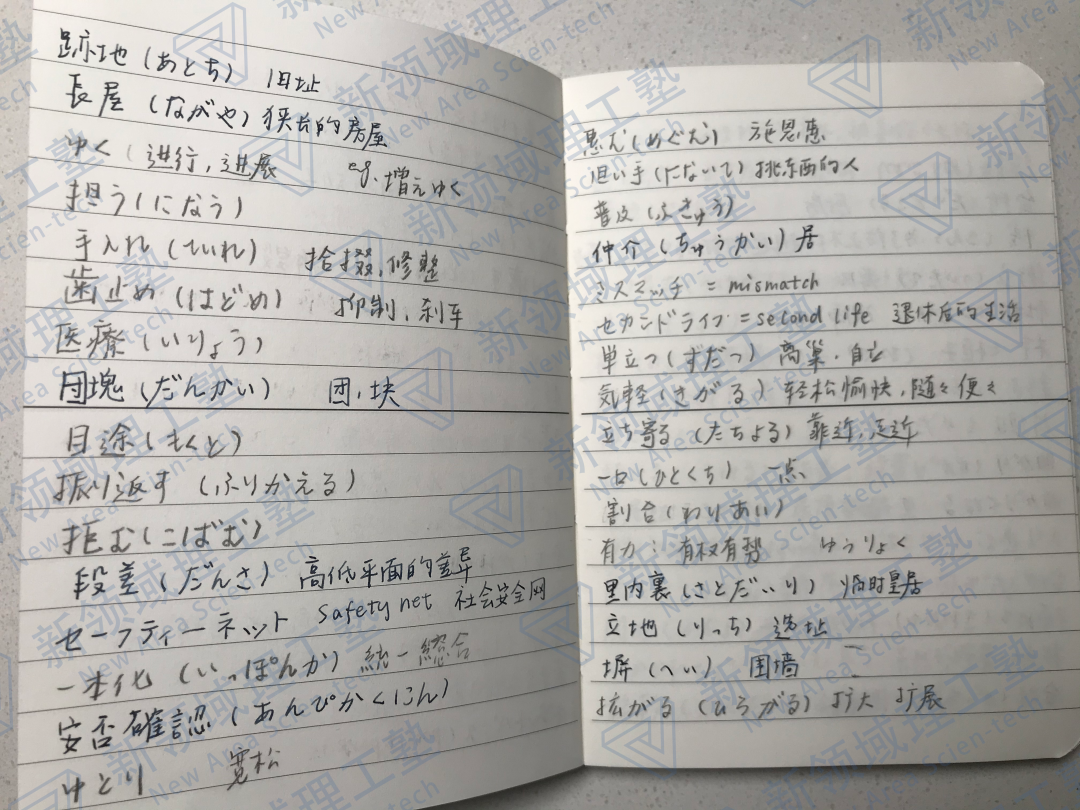 跡地（あとち） 旧址
長屋（ながや）狭长的房屋
ゆく（进行，进展 eg. 增えゆく
担う（になう）
手入れ（ていれ） 拾掇，修整
歯止め（はどめ） 抑制，刹车
医療（いりょう）
団塊（だんかい） 团，块
目途（もくと）
振り返す（ふりかえる）
拒む（こばむ）
段差（だんさ） 高低平面的差异
セーフティーネット safety net 社会安全网
一本化（いっぽんか）統一 総合
安否確認（あんぴかくにん）
ゆとり 宽松
恵む（めぐむ） 施恩惠
担い手（にないて）挑东西的人
普及（ふきゅう）
仲介（ちゅうかい）居
ミスマッチ = mismatch
セカンドライフ = second life 退休后的生活
単立つ（すだつ） 离巢，自立
気軽（きがる）轻松愉快，随々便々
立ち寄る（たちよる）靠近，
一口（ひとくち） 一点
割合（わりあい）
有力：有权有势 ゆうりょく
里内裏（さとだいり）临时皇居
立地（りっち）选址
塀（へい） 围墙
拡がる（ひろがる）扩大 扩展
新领域理工塾
New Area Scien-tech